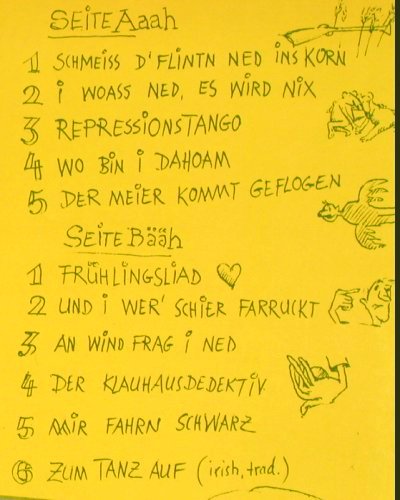 SEITE Aaah
1 SCHMEISS D'FLINTN NED INS KORN
2 i WOASS NED, ES WIRD NIX
3 REPRESSIONSTANGO
4 WO BIN i DAHOAM
5 DER MEIER KOMMT GEFLOGEN
SEITE Bääh
1 FRÜHLINGSLIAD
2 UND i WER' SCHIER FARRUCKT
3 AN WIND FRAG i NED
4 DER KLAUHAUSDEDEKTIV
5 MIR FAHRN SCHWARZ
6 ZUM TANZ AUF (irish, trad.)